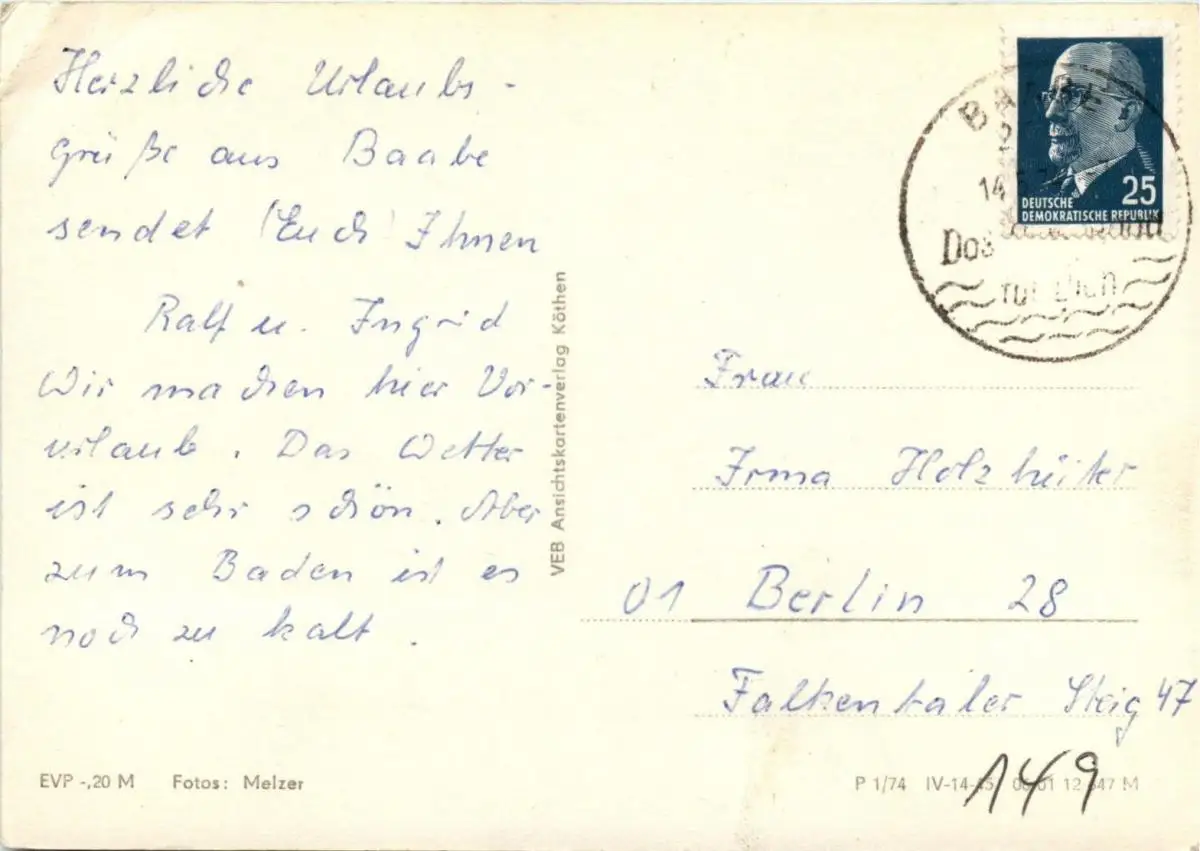 Herzliche Urlaubs-
grüße aus Baabe
sendet (Euch) Ihnen
Ralf u. Ingrid
Wir machen hier Vor-
urlaub. Das Wetter
ist sehr schön. Aber
zum Baden ist es
noch zu kalt.
EVP -,20 M Fotos: Melzer
VEB Ansichtskartenverlag Köthen
BAABE
14
Das
für Dich
25
DEUTSCHE
DEMOKRATISCHE REPUBLIK
Frau
Irma Holzhüter
01 Berlin 28
Falkentaler Steig 47
P 1/74 IV-14-45 06 01 12 847 M
149